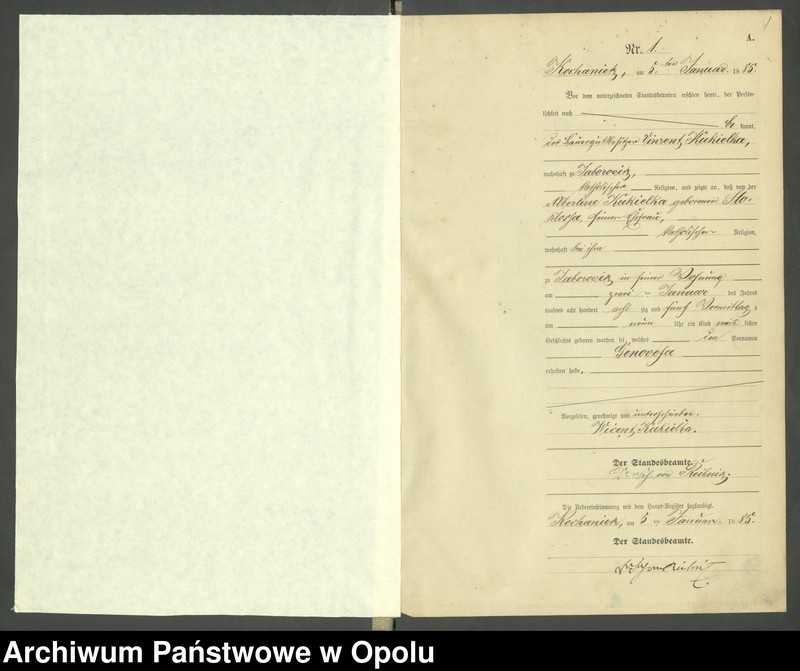 A.
Nr. 1.
Kochanietz, am 5. ten Januar 1885.
Vor dem unterzeichneten Standesbeamten erschien heute, der Persön-
lichkeit nach
be kannt,
der Bauergutsbesitzer Vinzent Kukielka,
wohnhaft zu
katholischer Religion, und zeigte an, daß von der
Albertine Kukielka geborenen Sto-
klossa, seiner Ehefrau,
katholischer Religion,
wohnhaft bei ihm
zu in seiner Wohnung
am zwei ten Januar des Jahres
tausend acht hundert acht zig und fünf Vormittags
um neun Uhr ein Kind weib lichen
Geschlechts geboren worden sei, welches den Vornamen
Genovefa
erhalten habe.
Vorgelesen, genehmigt und unterschrieben.
Wicent Kukielka.
Der Standesbeamte.
Die Uebereinstimmung mit dem Haupt-Register beglaubigt.
Kochanietz, am 5 ten Januar 1885.
Der Standesbeamte.
Archiwum Państwowe w Opolu